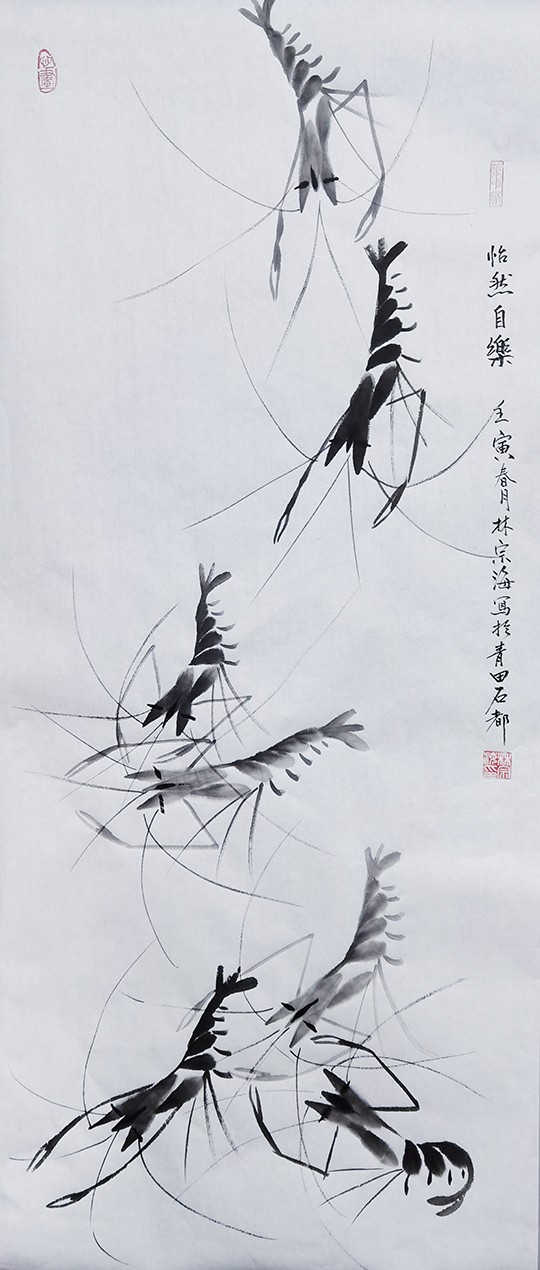 怡然自樂
壬寅春月林宗海寫於青田石都